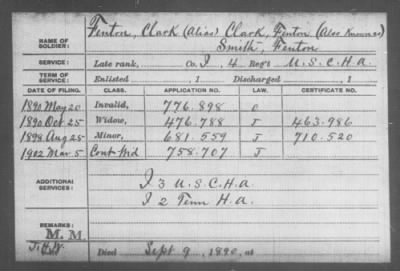 NAME OF SOLDIER: Fenton, Clark (Alias) Clark, Fenton (Also Known as)
Smith, Fenton
SERVICE: Late rank, Co. I, 4 Reg't U.S.C.H.A.
TERM OF SERVICE: Enlisted , 1 Discharged , 1
DATE OF FILING. CLASS. APPLICATION NO. LAW. CERTIFICATE NO.
1890 May 20 Invalid, 776.898 O
1890 Oct. 25 Widow, 476.788 J 463.986
1898 Aug 25 Minor, 681.559 J 710.520
1902 Mar 5 Cont Wid 758.707 J
ADDITIONAL SERVICES: I 3 U.S.C.H.A
I 2 Tenn H.A.
REMARKS:
M. M.
Died Sept 9, 1890, at